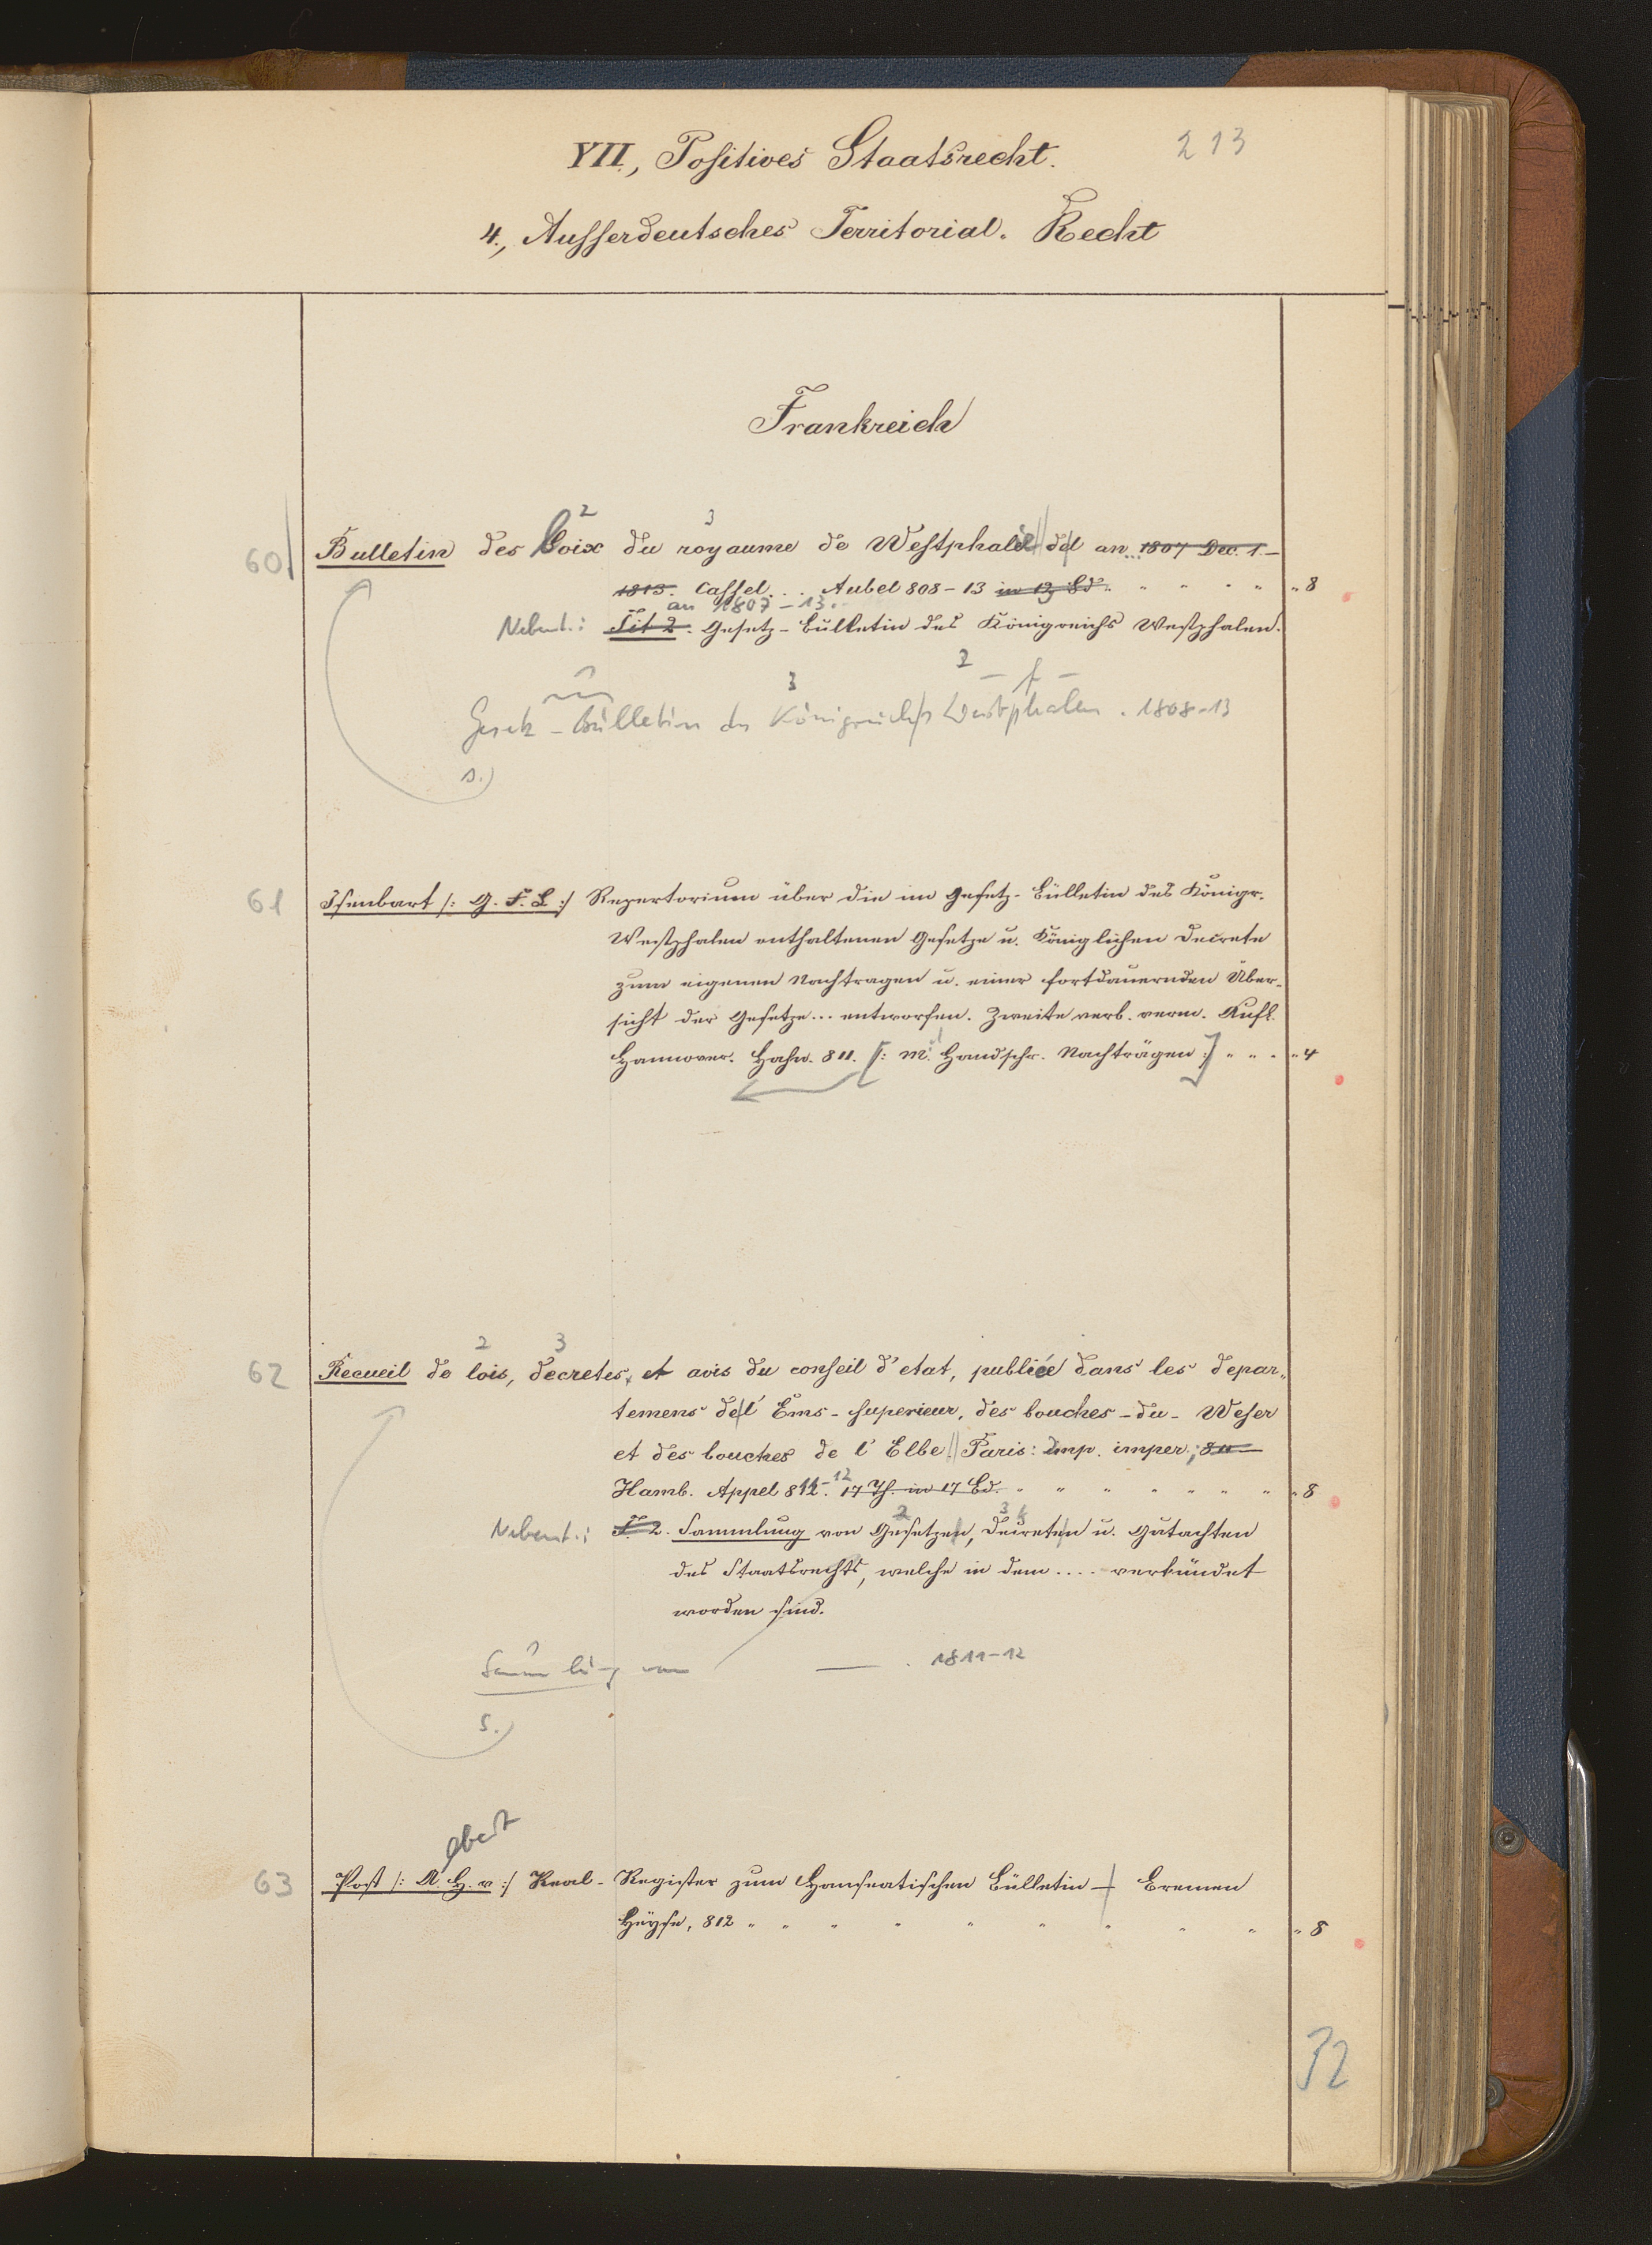 213
VII., Positives Staatsrecht.
4., Ausserdeutsches Territorial. Recht
Frankreich
2 3
60 Bulletin des loix du royaume de Westphalie del an ... 1807 Dec. 1.-
1813. Cassel ... Aubel 808-13 in 13 Bd. " " " " " 8
an 1807-13.
Nebent.: Tit 2. Gesetz-Bülletin des Königreichs Westphalen.
3 2
Gesetz-Bülletin des Königreichs Westphalen. 1808-13
s.)
61 Isenbart /: G. F. L :/ Repertorium über die im Gesetz-Bülletin des Königr.
Westphalen enthaltenen Gesetze u. Königlichen Decrete
zum eigenen Nachtragen u. einer fortdauernden Über-
sicht der Gesetze ... entworfen. Zweite verb. verm. Aufl.
Hannover. Hahn. 811. [: M. Handschr. Nachträgen :] " " " " 4
2 3
62 Recueil de lois, decretes, et avis du conseil d'etat, publiée dans les depar-
temens de l' Ems-superieur, des bouches-du-Weser
et des bouches de l' Elbe. Paris: Imp. imper.; 811
Hamb. Appel 811-12. 17 Th. in 17 Bd. " " " " " " " 8
2 3
Nebent.: T. 2. Sammlung von Gesetzen, Decreten u. Gutachten
des Staatsrechts, welche in dem .... verkündet
worden sind.
Sammlung von — . 1811-12
s.)
63 Post /: A. H. v :/ Real-Register zum Hanseatischen Bülletin - Bremen
Heyse, 812 " " " " " " " " " 8
32